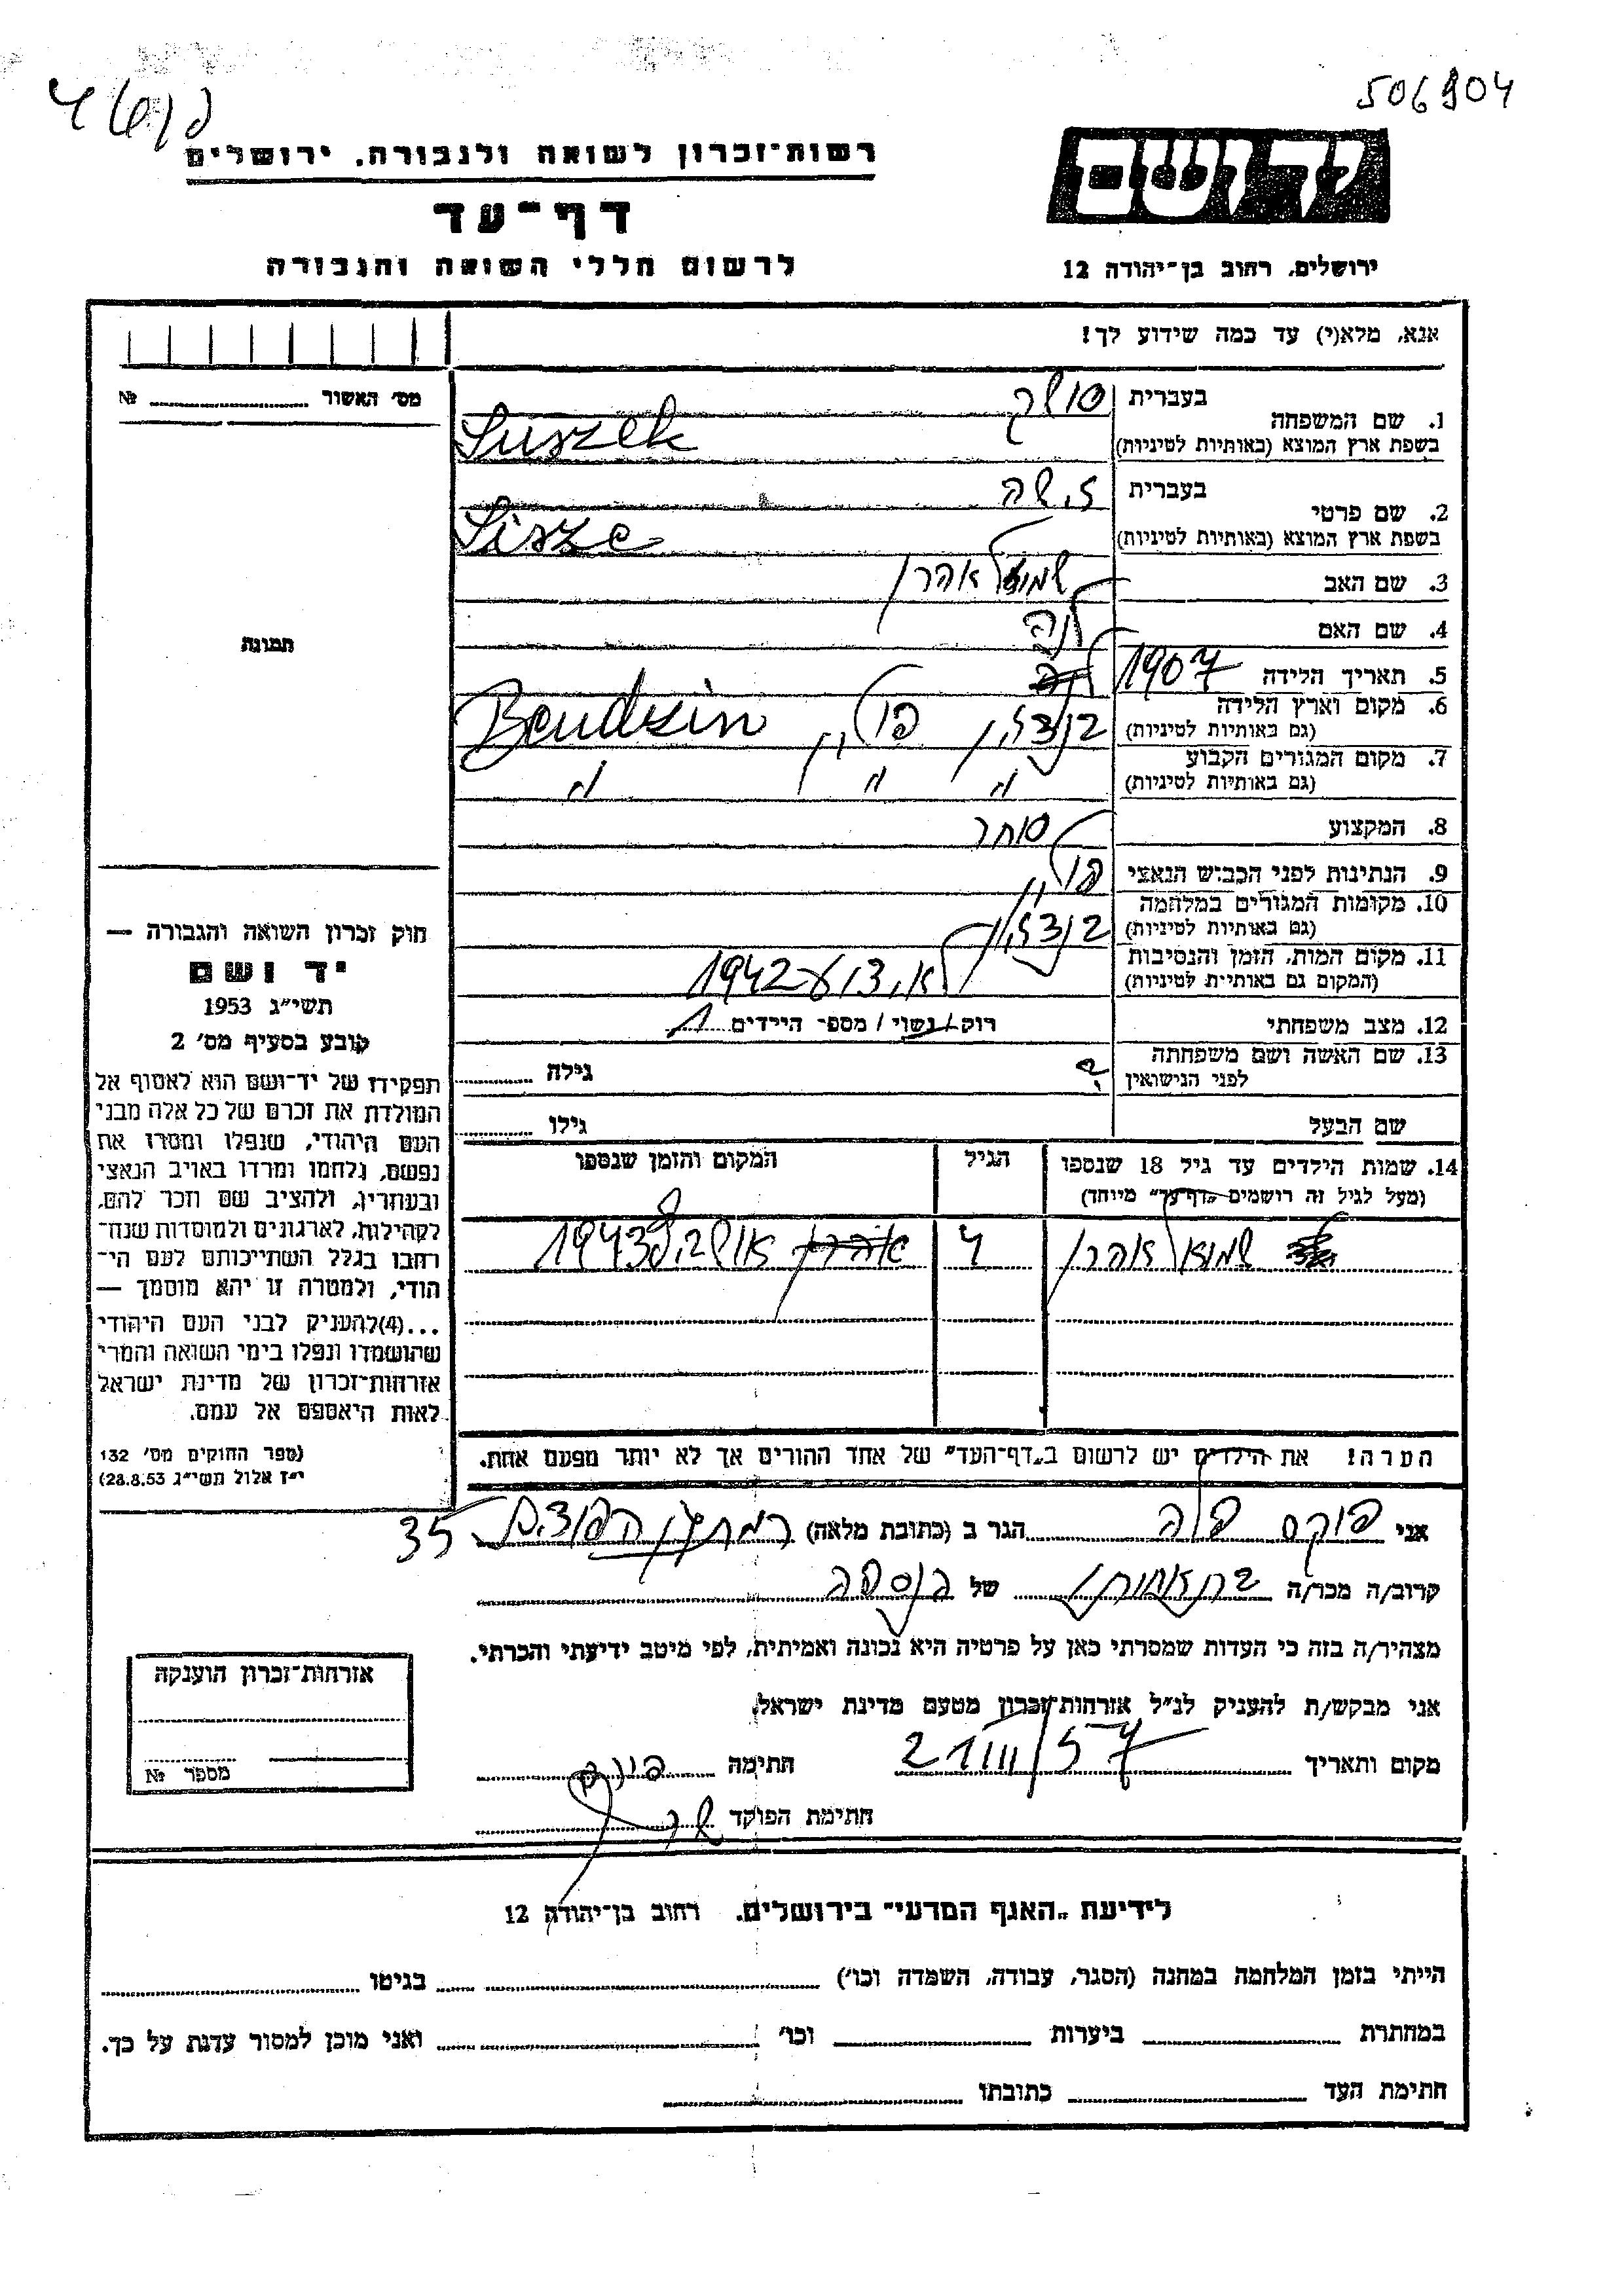 506904
רשות־זכרון לשואה ולגבורה, ירושלים
יד ושם
דף־עד
לרשום חללי השואה והגבורה
ירושלים, רחוב בן־יהודה 12
אנא, מלא(י) עד כמה שידוע לך!
מס׳ האשור № 
1. שם המשפחה בעברית
סושק
בשפת ארץ המוצא (באותיות לטיניות)
Suszek
2. שם פרטי בעברית
זישה
בשפת ארץ המוצא (באותיות לטיניות)
Sisze
3. שם האב שמואל אהרן
4. שם האם לאה
תמונה
5. תאריך הלידה 1907
6. מקום וארץ הלידה
(גם באותיות לטיניות) בנדצין, פולין Bendzin
7. מקום המגורים הקבוע
(גם באותיות לטיניות) " " "
8. המקצוע סוחר
9. הנתינות לפני הכבוש הנאצי פולין
10. מקומות המגורים במלחמה
(גם באותיות לטיניות) בנדצין
11. מקום המות, הזמן והנסיבות
(המקום גם באותיות לטיניות) 1942
12. מצב משפחתי רוק / נשוי / מספר הילדים 1
13. שם האשה ושם משפחתה
לפני הנישואין ? גילה
שם הבעל גילו
14. שמות הילדים עד גיל 18 שנספו הגיל המקום והזמן שנספו
(מעל לגיל זה רושמים „דף־עד״ מיוחד)
שמואל אהרן 4 1943
הערה! את הילדים יש לרשום ב„דף־העד״ של אחד ההורים אך לא יותר מפעם אחת.
חוק זכרון השואה והגבורה —
יד ושם
תשי״ג 1953
קובע בסעיף מס׳ 2
תפקידו של יד־ושם הוא לאסוף אל
המולדת את זכרם של כל אלה מבני
העם היהודי, שנפלו ומסרו את
נפשם, נלחמו ומרדו באויב הנאצי
ובעוזריו, ולהציב שם וזכר להם,
לקהילות, לארגונים ולמוסדות שנח־
רבו בגלל השתייכותם לעם הי־
הודי, ולמטרה זו יהא מוסמך —
...(4)להעניק לבני העם היהודי
שהושמדו ונפלו בימי השואה והמרי
אזרחות־זכרון של מדינת ישראל
לאות היאספם אל עמם.
(ספר החוקים מס׳ 132
י״ז אלול תשי״ג 28.8.53)
אני הגר ב (כתובת מלאה) 35
קרוב/ה מכר/ה של הנספה
מצהיר/ה בזה כי העדות שמסרתי כאן על פרטיה היא נכונה ואמיתית, לפי מיטב ידיעתי והכרתי.
אני מבקש/ת להעניק לנ״ל אזרחות־זכרון מטעם מדינת ישראל
מקום ותאריך 21/III/57 חתימה
חתימת הפוקד
אזרחות־זכרון הוענקה
מספר №
לידיעת „האגף המדעי״ בירושלים. רחוב בן־יהודה 12
הייתי בזמן המלחמה במחנה (הסגר, עבודה, השמדה וכו׳) בגיטו
במחתרת ביערות וכו׳ ואני מוכן למסור עדות על כך.
חתימת העד כתובתו